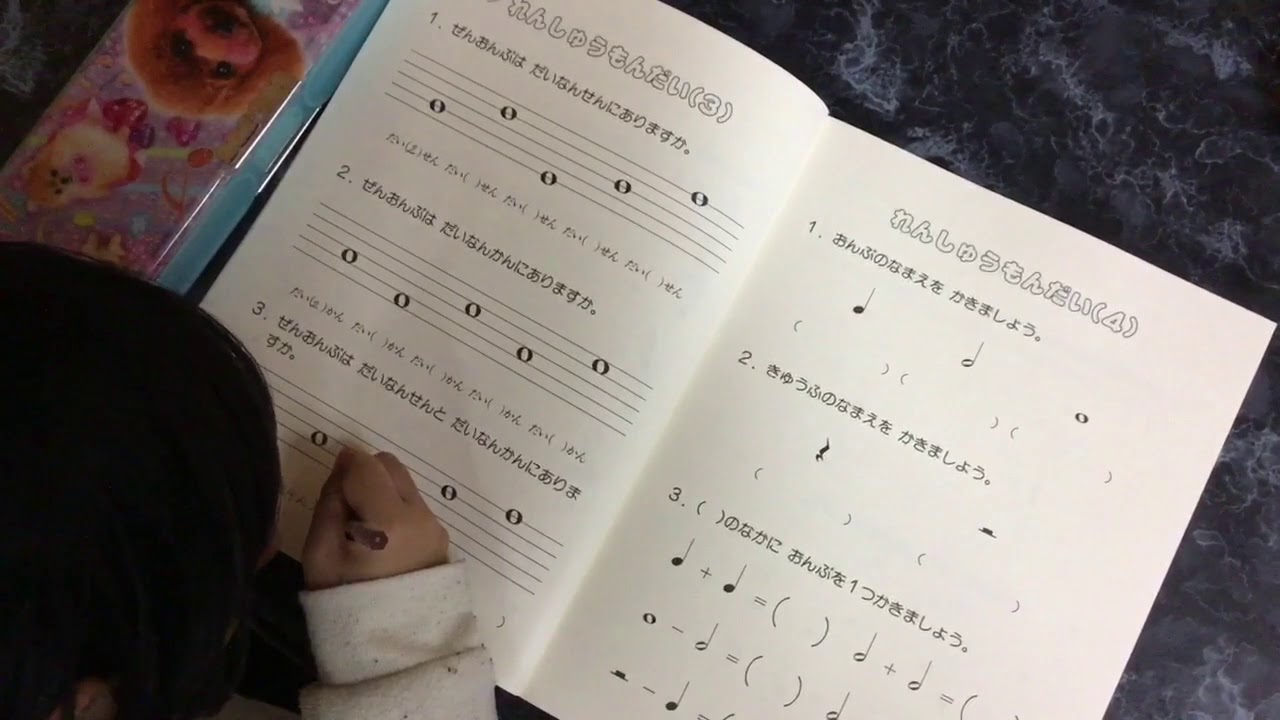 れんしゅうもんだい(3)
1. ぜんおんぷは だいなんせんにありますか。
だい(2)せん だい( )せん だい( )せん だい( )せん だい( )せん
2. ぜんおんぷは だいなんかんにありますか。
だい(2)かん だい( )かん だい( )かん だい( )かん だい( )かん
3. ぜんおんぷは だいなんせんと だいなんかんにありま
すか。
)
れんしゅうもんだい(4)
1. おんぷのなまえを かきましょう。
( ) ( ) ( )
2. きゅうふのなまえを かきましょう。
( ) ( )
3. ( )のなかに おんぷを1つかきましょう。
♩ + ♩ = ( ) 𝅗𝅥 + 𝅗𝅥 = (
𝅝 - 𝅗𝅥 = ( )